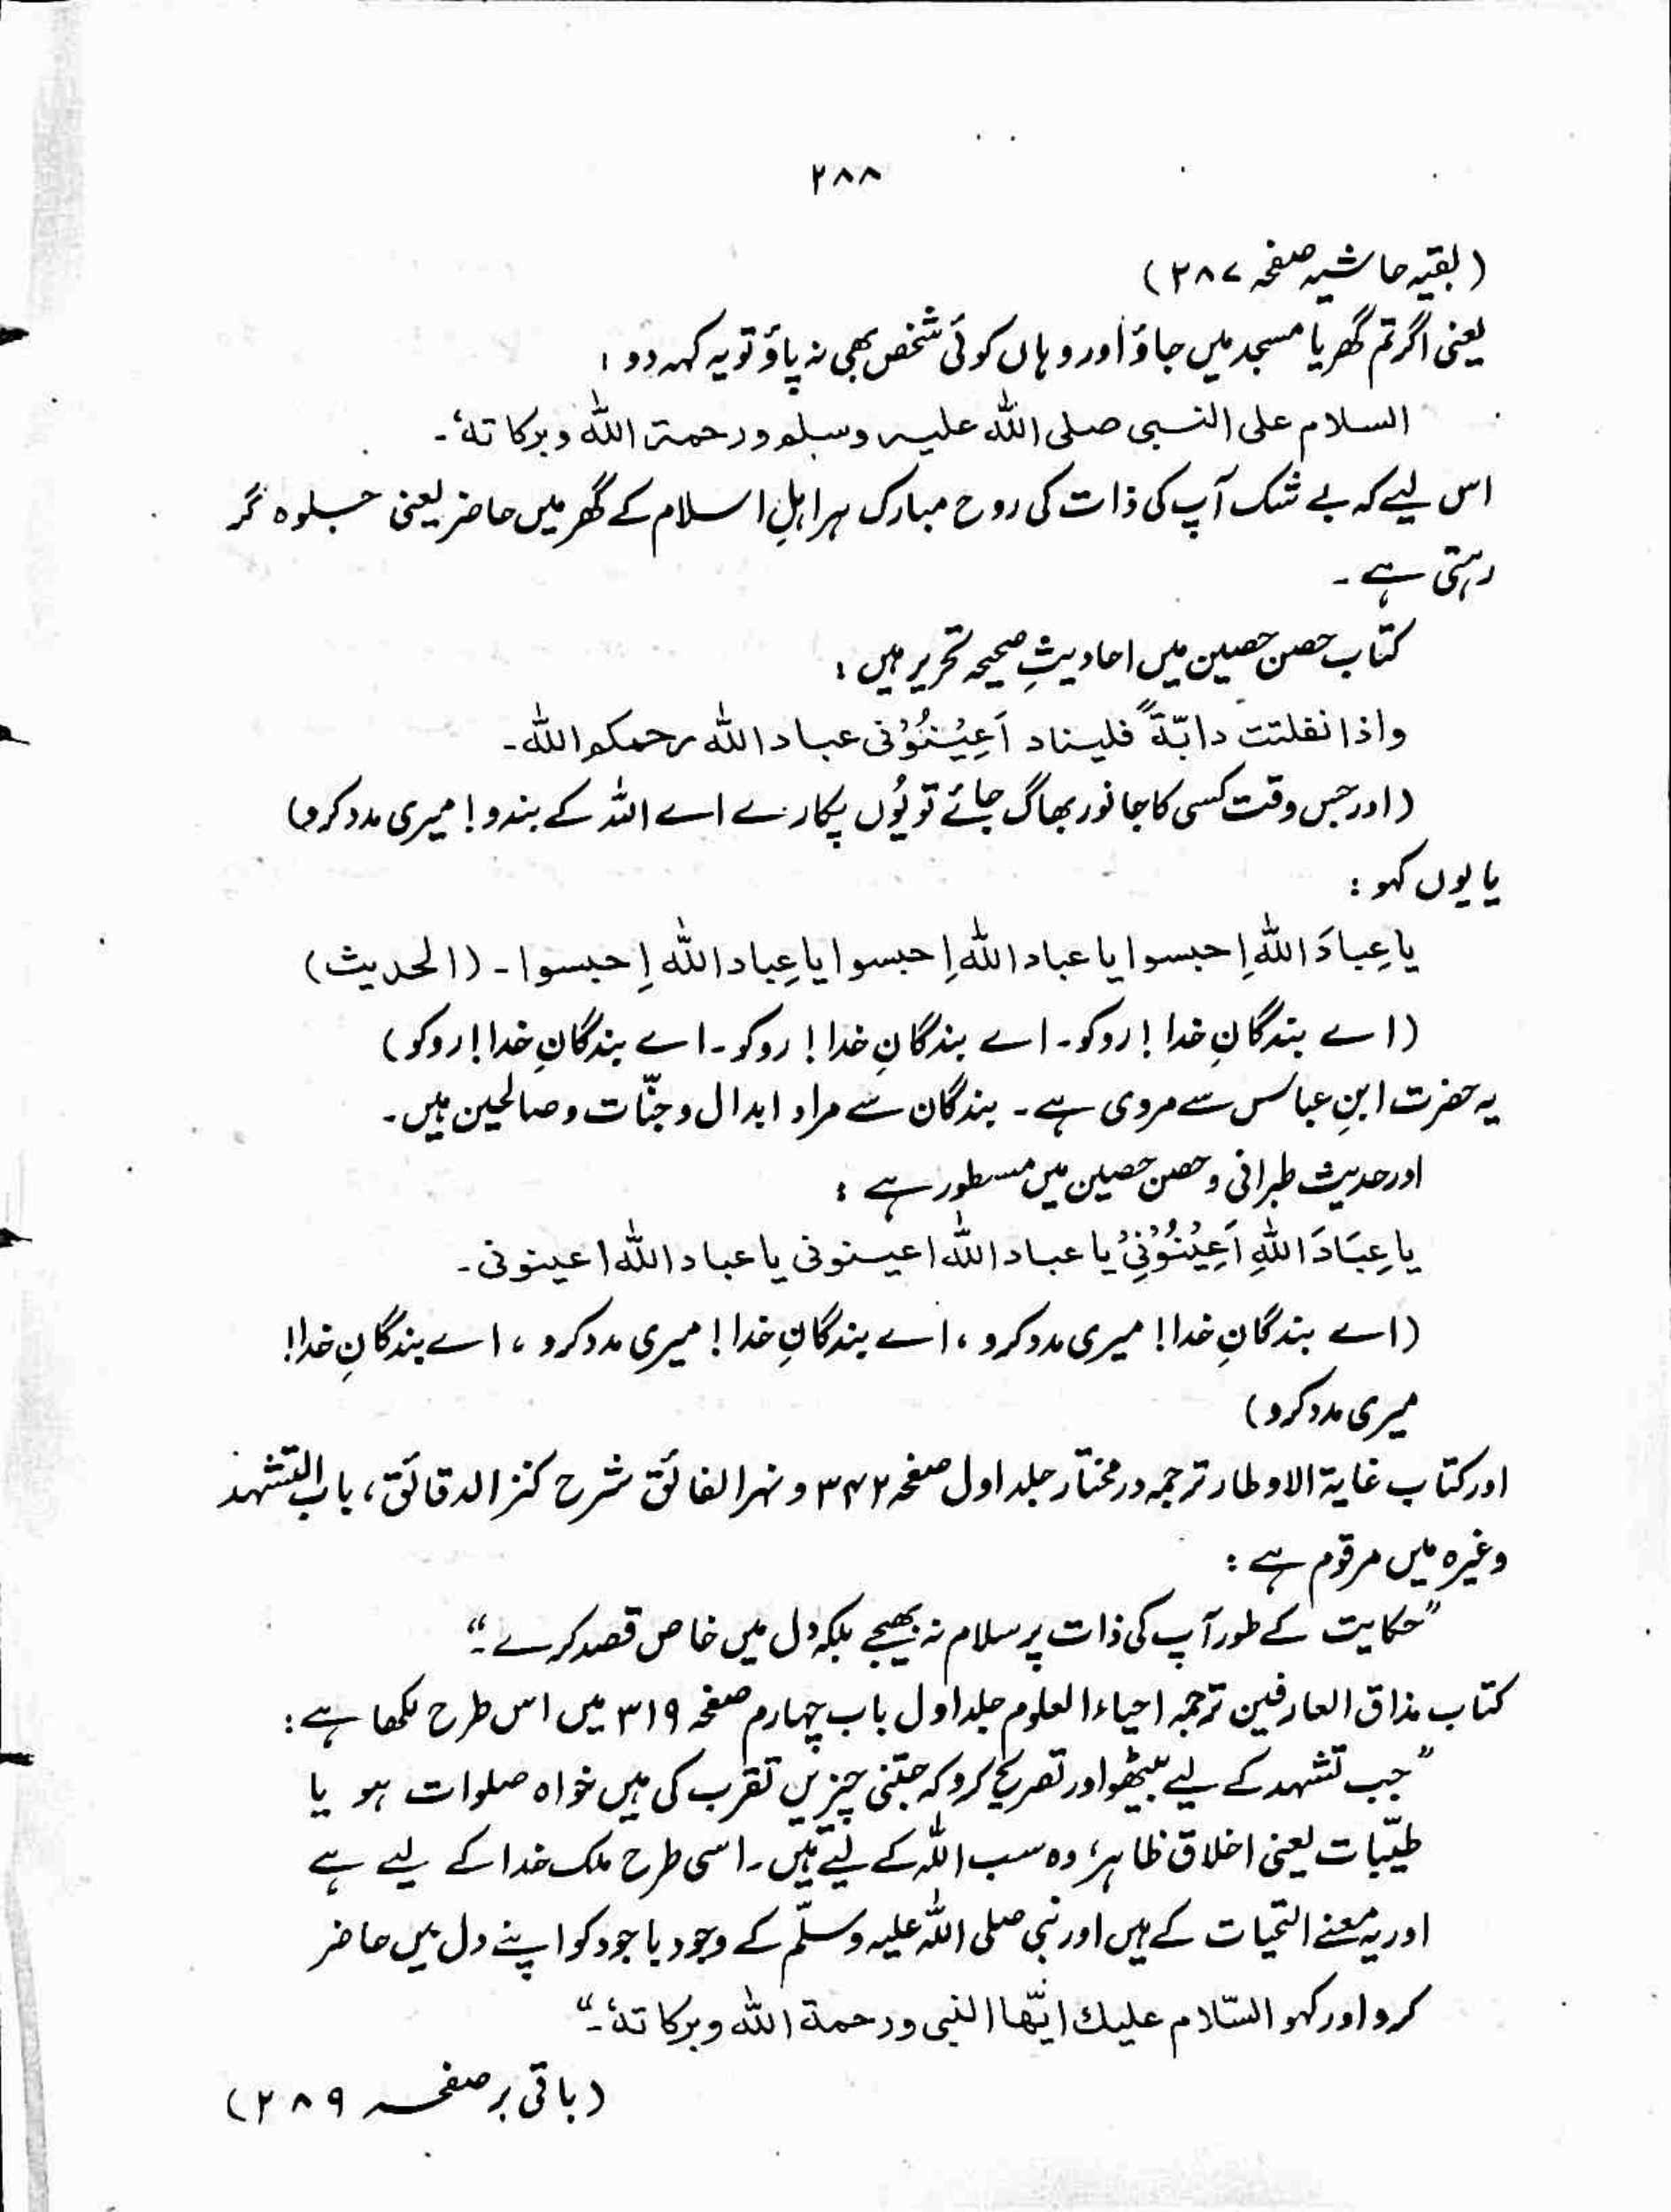 ۲۸۸
(بقیہ حاشیہ صفحہ ۲۸۷)
یعنی اگر تم گھر یا مسجد میں جاؤ اور وہاں کوئی شخص بھی نہ پاؤ تو یہ کہہ دو :
السلام علی النبی صلی اللہ علیہ وسلم ورحمۃ اللہ وبرکاتہٗ۔
اس لیے کہ بے شک آپ کی ذات کی روح مبارک ہر اہلِ اسلام کے گھر میں حاضر یعنی جلوہ گر
رہتی ہے۔
کتاب حصن حصین میں احادیثِ صحیحہ تحریر ہیں :
واذا نفلتت دابّۃً فلیناد اَعِیْنُوْنی عباد اللہ رحمکم اللہ۔
(اور جس وقت کسی کا جانور بھاگ جائے تو یُوں پکارے اے اللہ کے بندو! میری مدد کرو)
یا یوں کہو :
یا عِبادَ اللہ اِحبسوا یا عباد اللہ اِحبسوا یا عِباد اللہ اِحبسوا۔ (الحدیث)
(اے بندگانِ خدا! روکو۔ اے بندگانِ خدا! روکو۔ اے بندگانِ خدا! روکو)
یہ حضرت ابنِ عباس سے مروی ہے۔ بندگان سے مراد ابدال و جنّات و صالحین ہیں۔
اور حدیث طبرانی و حصن حصین میں مسطور ہے :
یا عِبَادَ اللہِ اَعِیْنُوْنِیْ یا عباد اللہ اعینونی یا عباد اللہ اعینونی۔
(اے بندگانِ خدا! میری مدد کرو، اے بندگانِ خدا! میری مدد کرو، اے بندگانِ خدا!
میری مدد کرو)
اور کتاب غایۃ الاوطار ترجمہ درمختار جلد اول صفحہ ۳۴۲ و نہر الفائق شرح کنز الدقائق، باب التشہد
وغیرہ میں مرقوم ہے :
”حکایت کے طور آپ کی ذات پر سلام نہ بھیجے بلکہ دل میں خاص قصد کرے۔“
کتاب مذاق العارفین ترجمہ احیاء العلوم جلد اول باب چہارم صفحہ ۳۱۹ میں اس طرح لکھا ہے :
”جب تشہد کے لیے بیٹھو اور تصریح کرو کہ جتنی چیزیں تقرب کی ہیں خواہ صلوات ہو یا
طیّبات یعنی اخلاق ظاہر، وہ سب اللہ کے لیے ہیں۔ اسی طرح ملک خدا کے لیے ہے
اور یہ معنے التحیات کے ہیں اور نبی صلی اللہ علیہ وسلّم کے وجود باجود کو اپنے دل میں حاضر
کرو اور کہو السّلام علیك ایّھا النبی ورحمۃ اللہ وبرکاتہٗ۔“
(باقی بر صفحہ ۲۸۹)